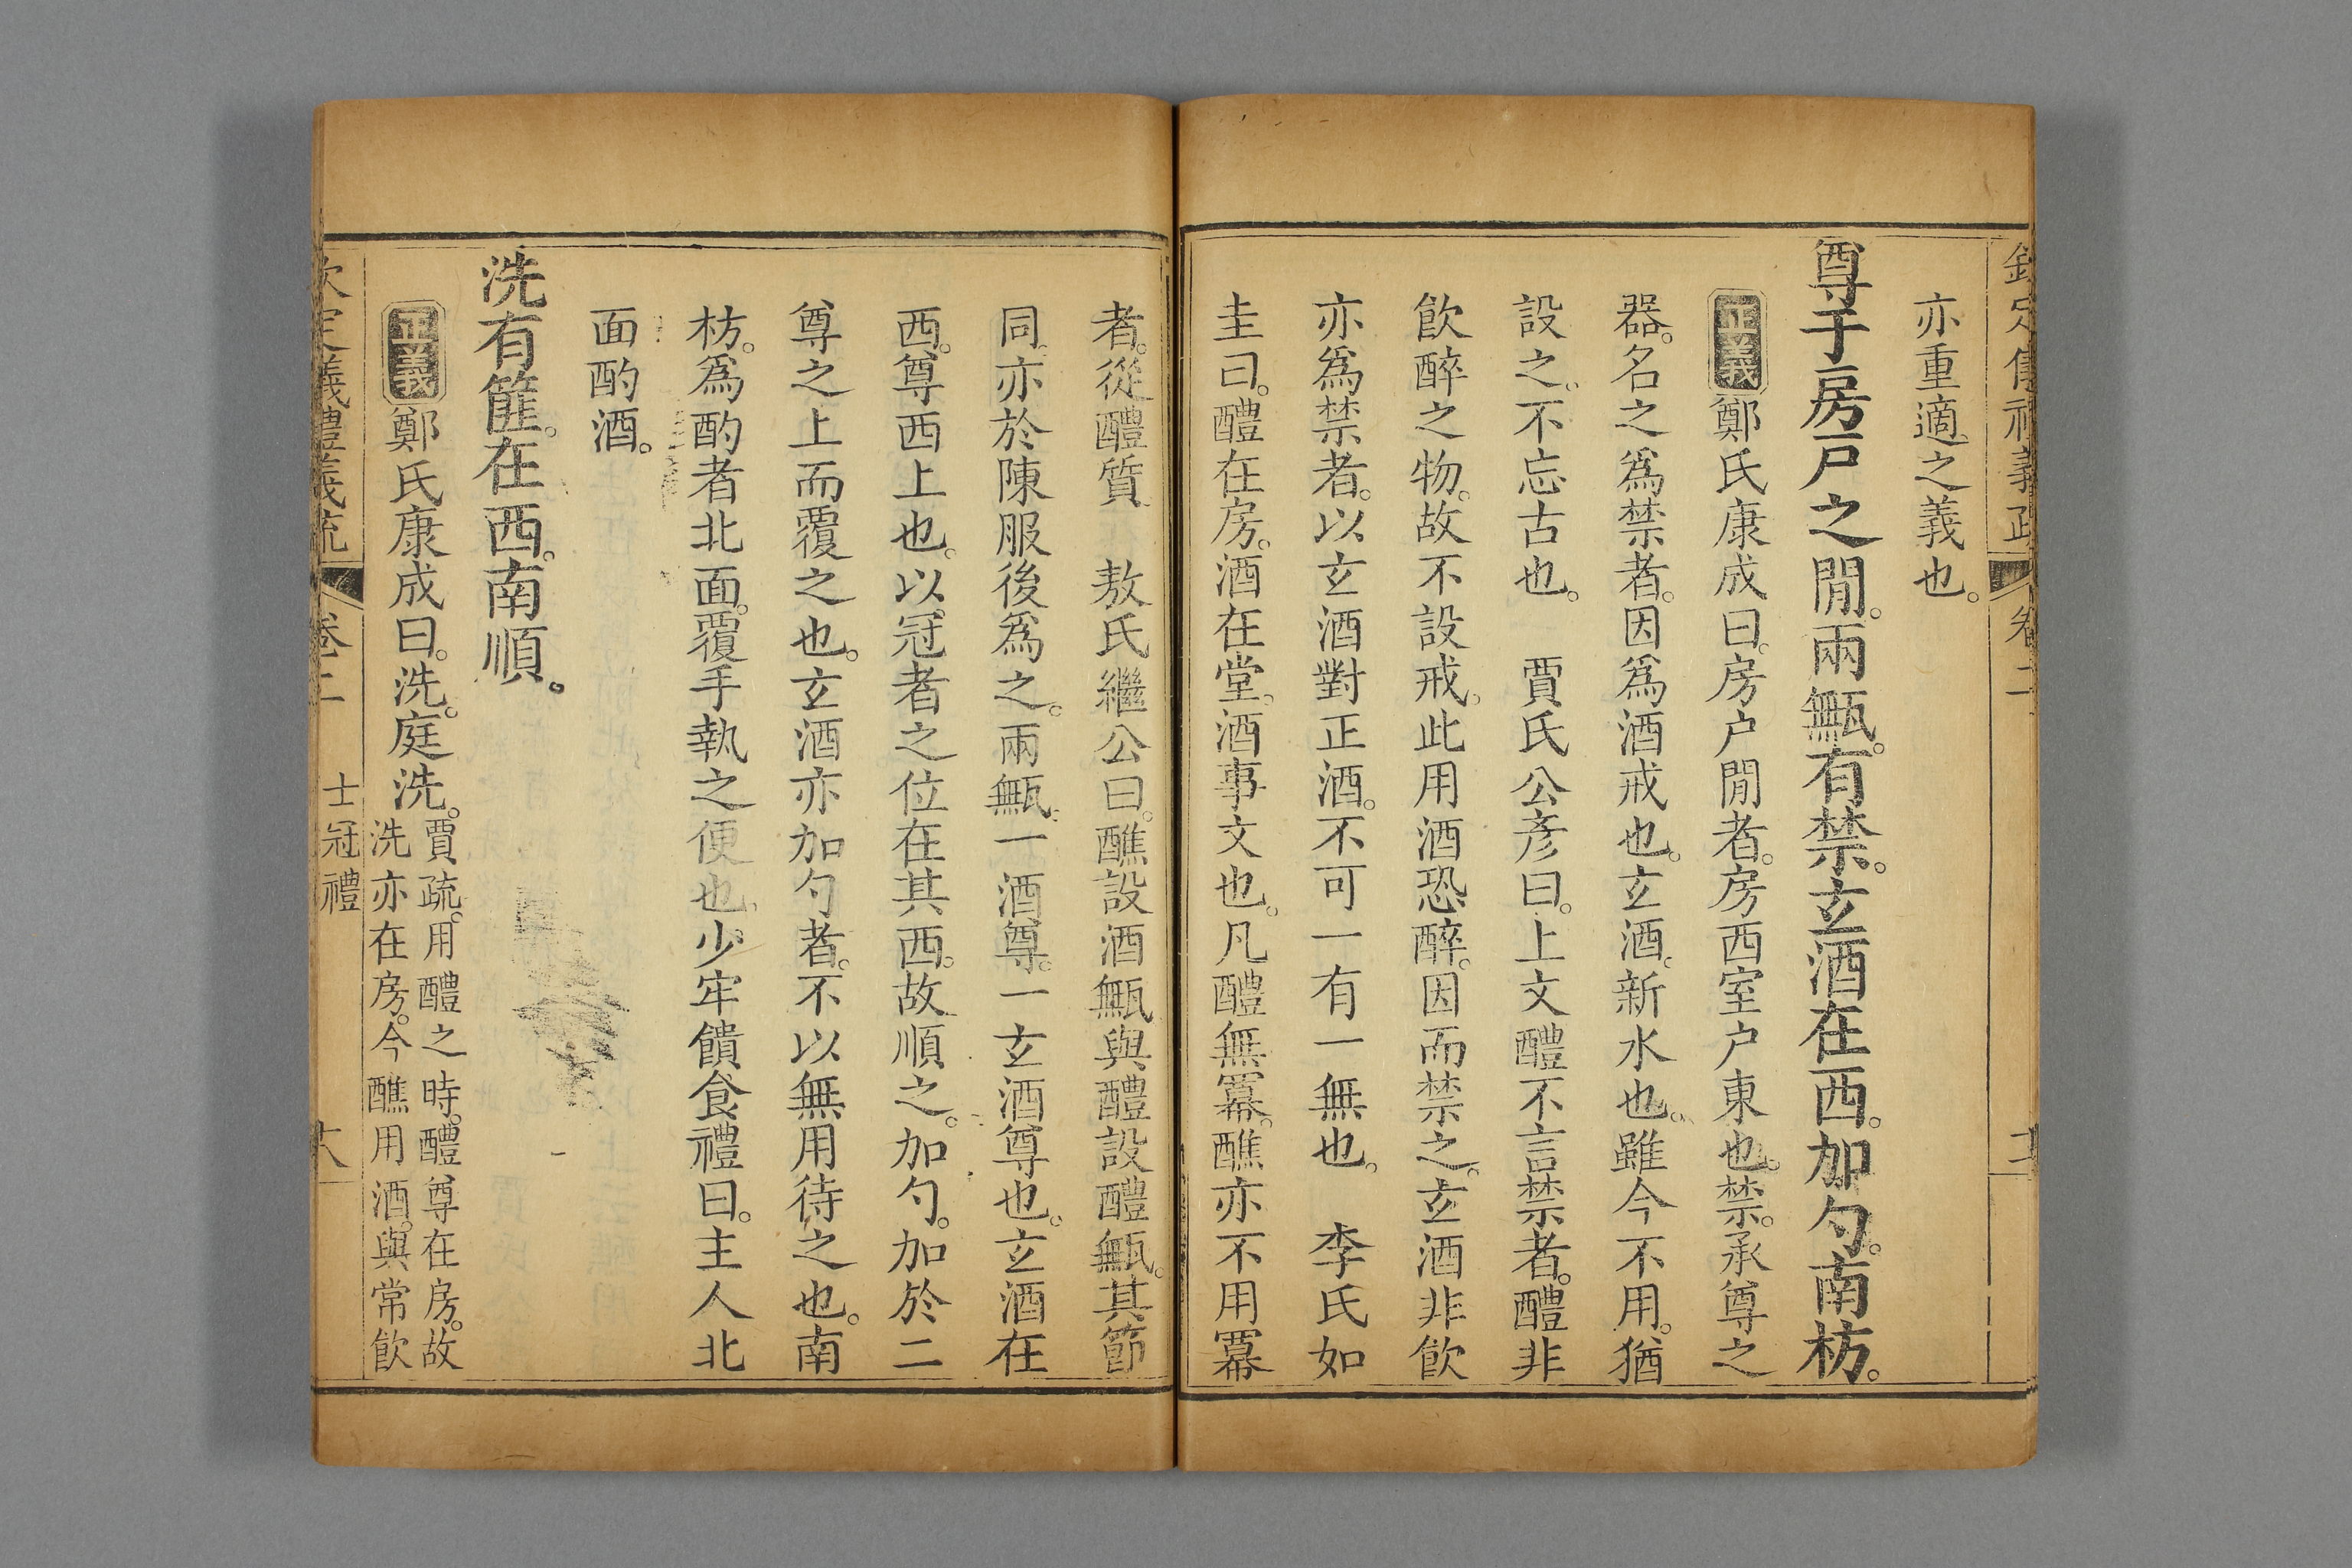 亦重適之義也。
尊于房戸之閒。兩甒。有禁。玄酒在西。加勺。南枋。
正義 鄭氏康成曰。房户閒者。房西室户東也。禁。承尊之
器。名之爲禁者。因爲酒戒也。玄酒。新水也。雖今不用。猶
設之。不忘古也。　賈氏公彥曰。上文醴不言禁者。醴非
飲醉之物。故不設戒。此用酒恐醉。因而禁之。玄酒非飲
亦爲禁者。以玄酒對正酒。不可一有一無也。　李氏如
圭曰。醴在房。酒在堂。酒事文也。凡醴無冪。醮亦不用冪
者。從醴質　敖氏繼公曰。醮設酒甒與醴設醴甒。其節
同。亦於陳服後爲之。兩甒。一酒尊。一玄酒尊也。玄酒在
西。尊西上也。以冠者之位在其西。故順之。加勺。加於二
尊之上而覆之也。玄酒亦加勺者。不以無用待之也。南
枋。爲酌者北面。覆手執之便也。少牢饋食禮曰。主人北
面酌酒。
洗有篚。在西。南順。
正義 鄭氏康成曰。洗。庭洗。
賈疏。用醴之時。醴尊在房。故
洗亦在房。今醮用酒。與常飲
欽定義禮義疏 卷二 士冠禮